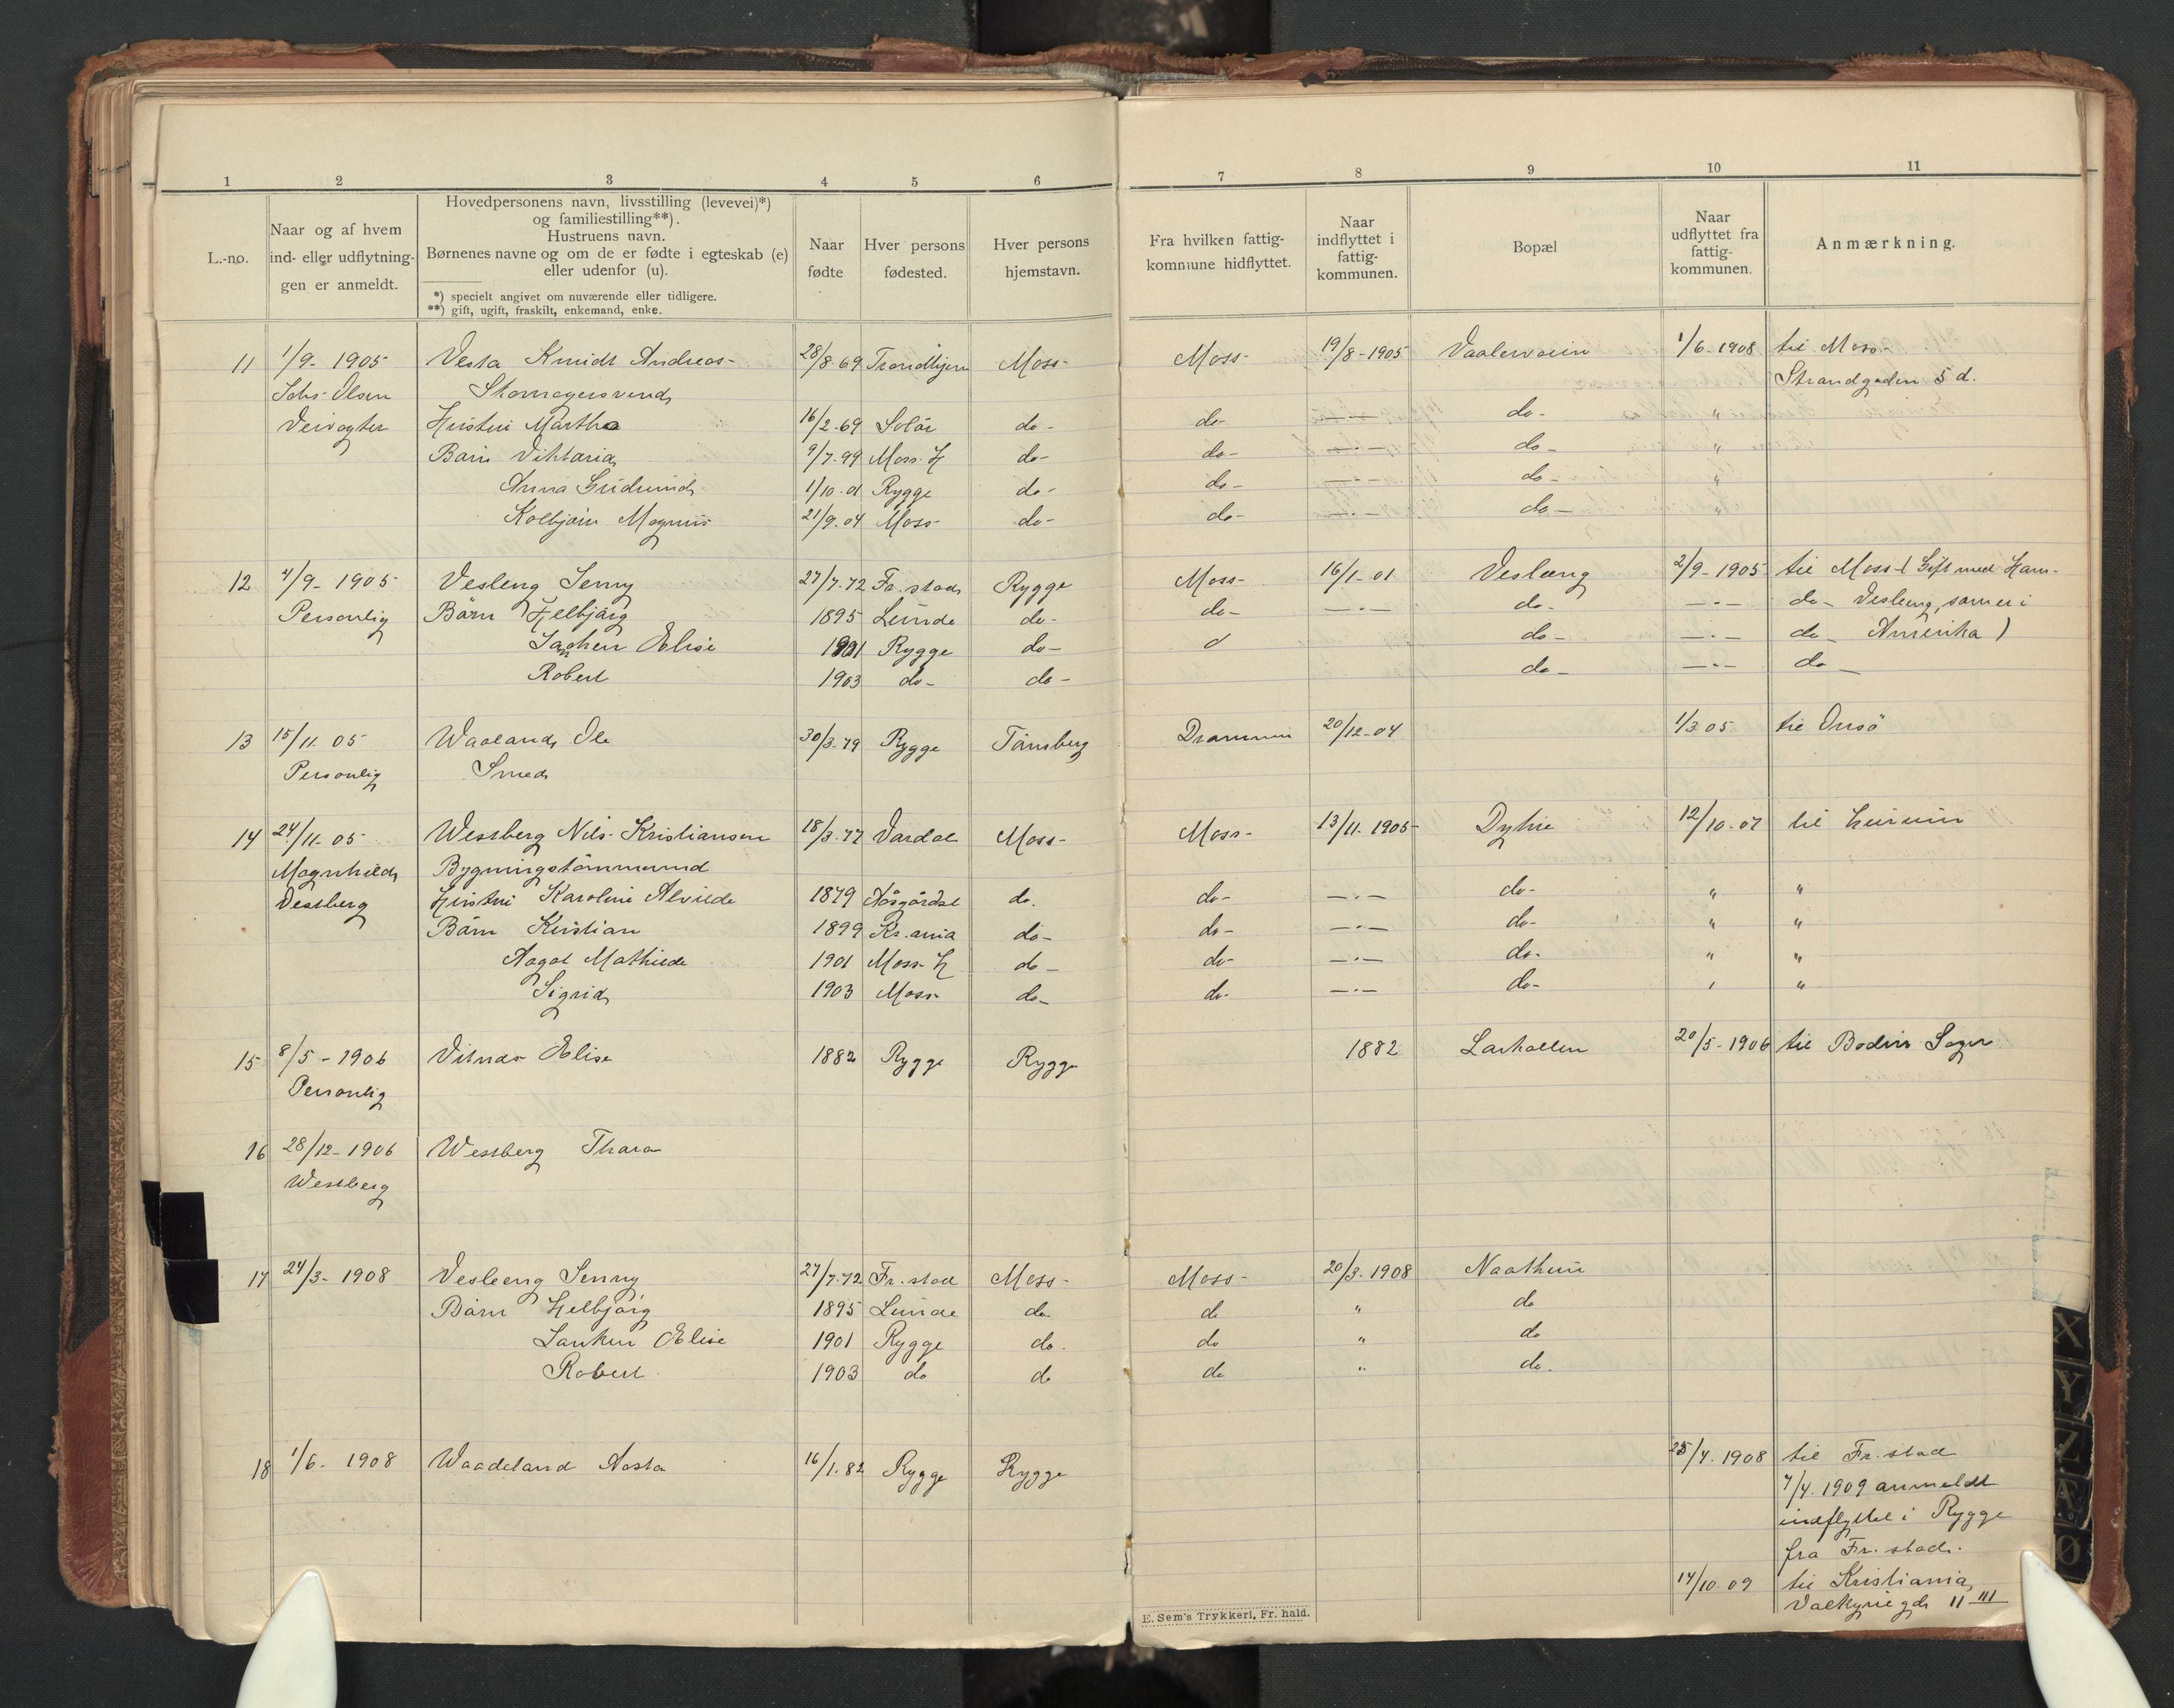 1 2 3 4 5 6 7 8 9 10 11
L.-no.
Naar og af hvem
ind- eller udflytnin-
gen er anmeldt.
Hovedpersonens navn, livsstilling (levevei)*)
og familiestilling**).
Hustruens navn.
Børnenes navne og om de er fødte i egteskab (e)
eller udenfor (u).
*) specielt angivet om nuværende eller tidligere.
**) gift, ugift, fraskilt, enkemand, enke.
Naar
fødte
Hver persons
fødested.
Hver persons
hjemstavn.
Fra hvilken fattig-
kommune hidflyttet.
Naar
indflyttet i
fattig-
kommunen.
Bopæl
Naar
udflyttet fra
fattig-
kommunen.
Anmærkning.
11 1/9- 1905 Vesta Knudt Andreas- 28/8-69 Trondhjem Moss- Moss- 19/8-1905 1/6-1908 til Moss-
Johs. Olsen Skomagersvend Strandgaden 5 d.
Veivogter Hustru Martha 16/2-69 Solør do- do- —·— do- "
Børn Viktoria 9/7-99 Moss. L do- do- —·— do- "
Anna 1/10-01 Rygge do- do- —·— do- "
Kolbjørn Magnus 21/9-04 Moss- do- do- —·— do- "
12 4/9- 1905 Vesleng Jenny 27/7-72 Fr.stad Rygge Moss- 16/1-01 Vesleng 2/9-1905 til Moss- (Gift med Ham-
Personlig Børn Helbjørg 1895 Lunde do- do- —·— do- —·— do- Vesleng, som er i
Elise 1901 Rygge do- d do- —·— do- Amerika)
Robert 1903 do- do- do- —·— do-
13 15/11 05 Waaland Ole 30/3-79 Rygge Tønsberg Drammen 20/12-04 1/3 05 til Onsø
Personlig Smed
14 24/11-05 Westberg Nils Kristiansen 18/3-77 Vardal Moss- Moss- 13/11-1905 12/10-07 til
Magnhild Bygningstømmermand
Vestberg Hustru Karoline Alvilde 1879 do. do- —·— do- " "
Børn Kristian 1899 Kr.ania do- do- —·— do- " "
Aagot Mathilde 1901 Moss- L do- do- —·— do- " "
Sigrid 1903 Moss- do- do- —·— do- " "
15 8/5-1906 Vitnds Elise 1882 Rygge Rygge 1882 Larkollen 20/5-1906 til Bodin Sogn
Personlig
16 28/12-1906 Westberg Thora
Westberg
17 24/3-1908 Vesleeng Jenny 27/7-72 Fr.stad Moss- Moss- 20/3-1908
Børn Helbjørg 1895 Lunde do- do " do
Elise 1901 Rygge do. do " do
Robert 1903 do do do " do.
18 1/6-1908 Waadeland Aasta 16/1-82 Rygge Rygge 25/4-1908 til Fr.stad
7/4-1909 anmeldt
indflyttet i Rygge
fra Fr.stad.
14/10-09 til Kristiania,
Valkyriegd 11 III
E. Sem's Trykkeri, Fr.hald.
X
Y
Z
Ø